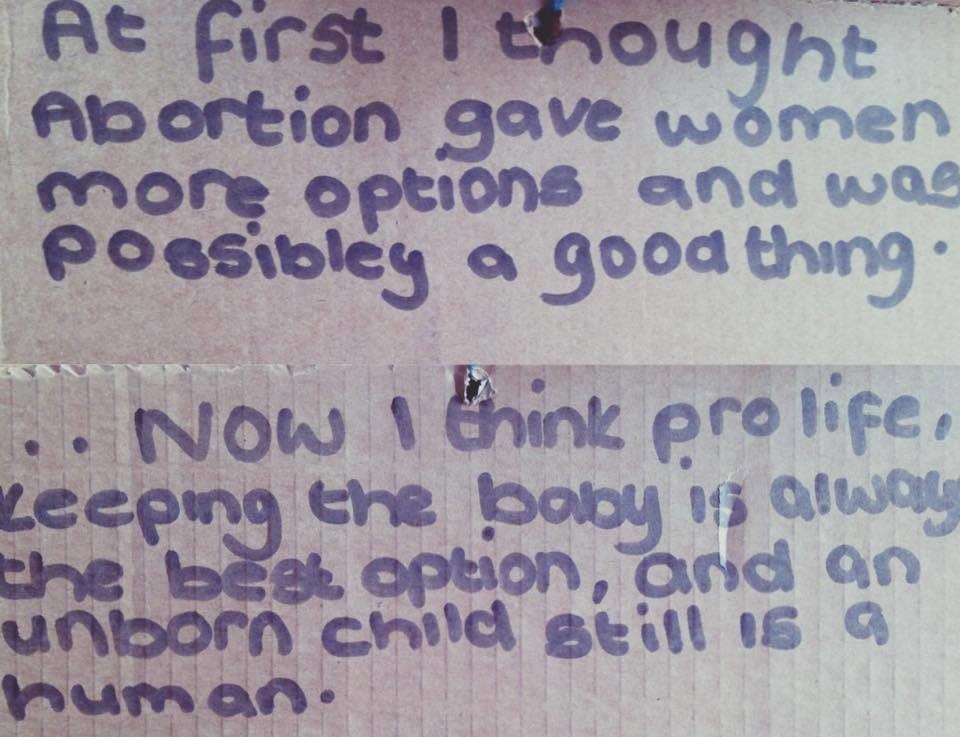 At first I thought
Abortion gave women
more options and was
possibley a good thing.
.. Now I think pro life,
keeping the baby is always
the best option, and an
unborn child still is a
human.